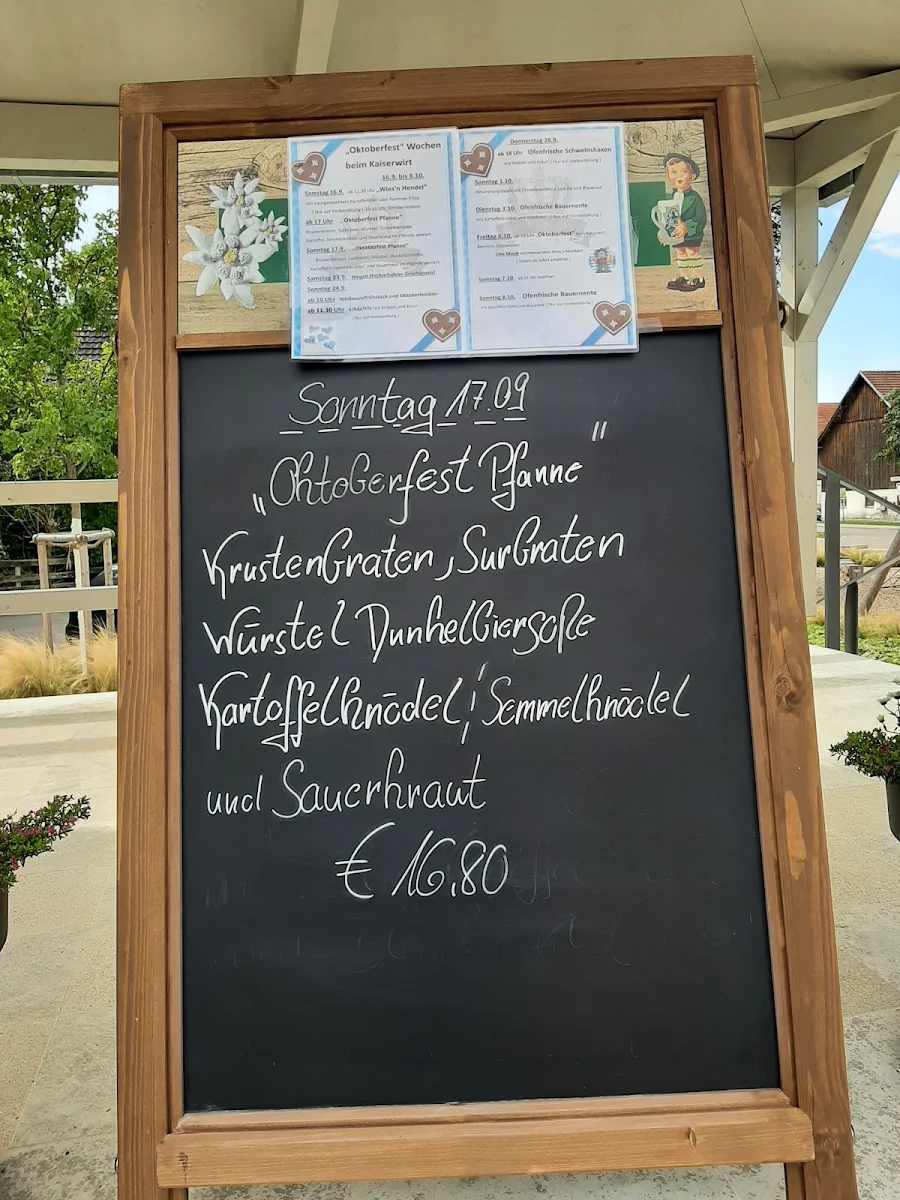 „Oktoberfest" Wochen
beim Kaiserwirt
16.9. bis 8.10.
Samstag 16.9. ab 11.30 Uhr „Wies'n Hendel"
ab 17 Uhr „Oktoberfest Pfanne"
Sonntag 17.9. „Oktoberfest Pfanne"
Samstag 23.9.
Sonntag 24.9.
ab 10 Uhr Weißwurstfrühstück und Oktoberfestbier
ab 11.30 Uhr
Donnerstag 28.9.
ab 18 Uhr Ofenfrische Schweinshaxen
Sonntag 1.10.
Dienstag 3.10. Ofenfrische Bauernente
Freitag 6.10. „Oktoberfest"
Live Musik
Samstag 7.10.
Sonntag 8.10. Ofenfrische Bauernente
Sonntag 17.09
„Oktoberfest Pfanne"
Krustenbraten, Surbraten
Würstel Dunkelbiersoße
Kartoffelknödel, Semmelknödel
und Sauerkraut
€ 16.80